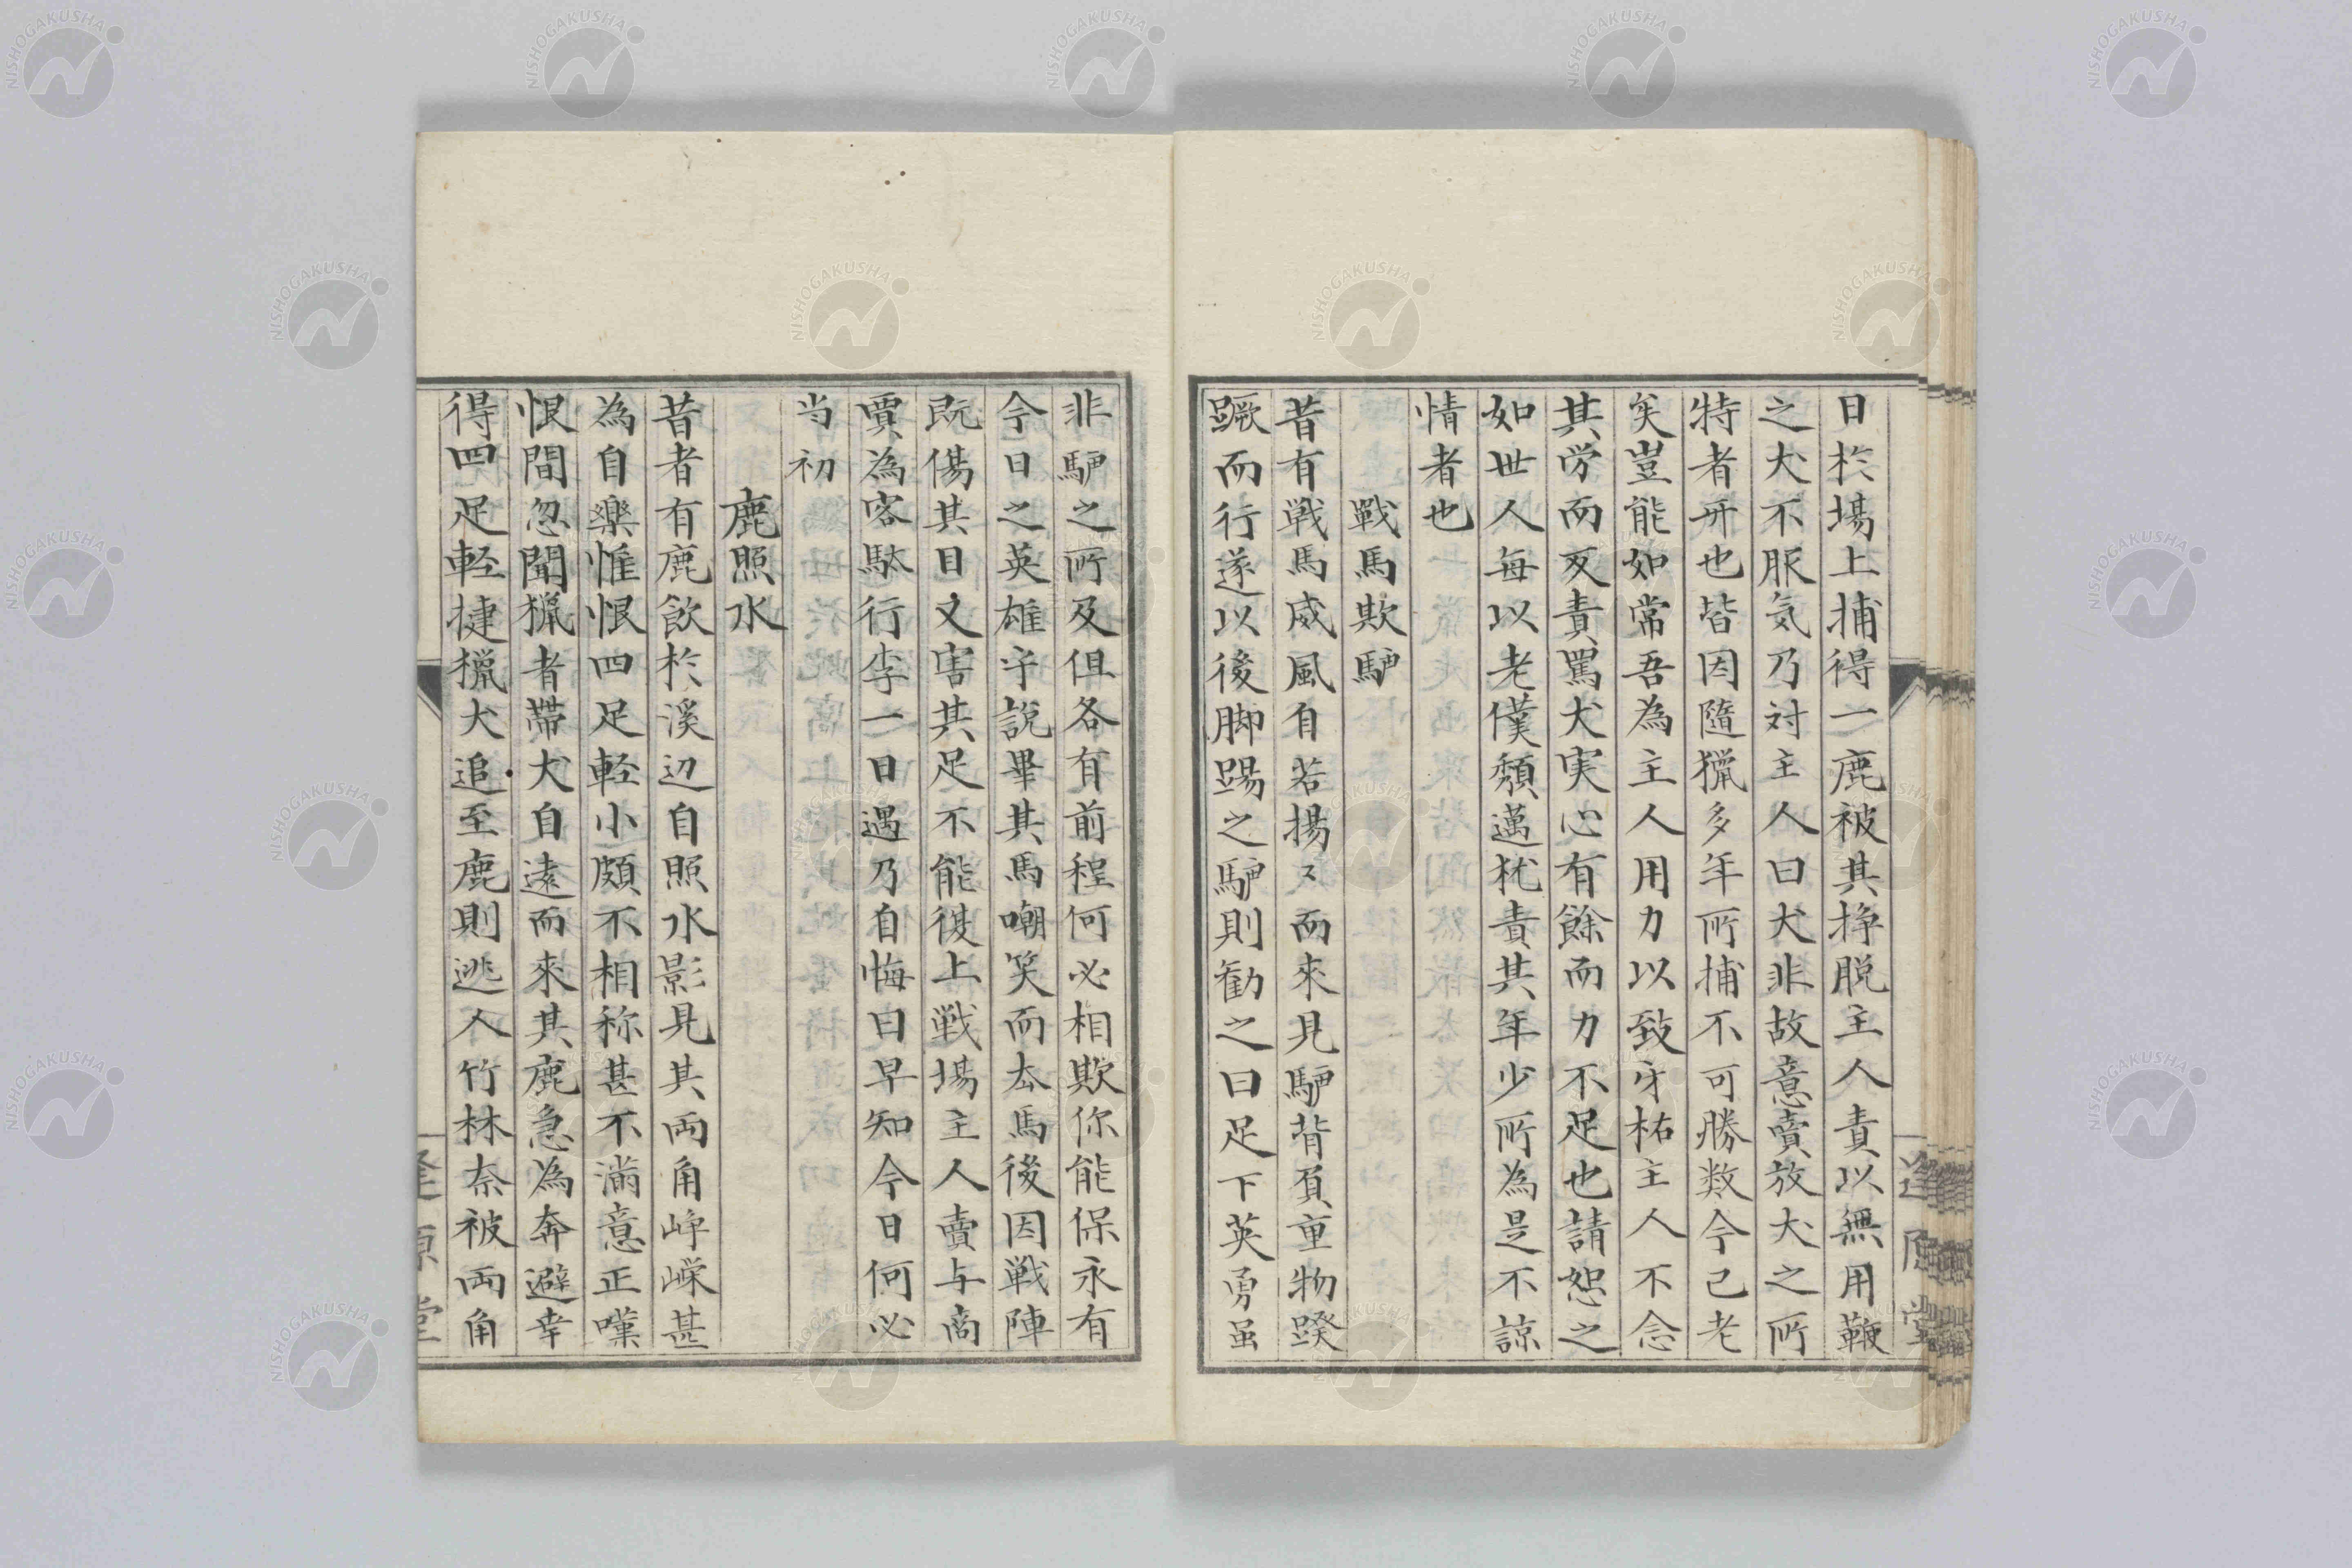 日於場上捕得一鹿被其掙脱主人責以無用鞭
之犬不服気乃対主人曰犬非故意賣放犬之所
特者牙也皆因隨獵多年所捕不可勝数今已老
矣豈能如常吾為主人用力以致牙枯主人不念
其労而反責罵犬実心有餘而力不足也請恕之
如世人每以老僕頽邁犹責其年少所為是不諒
情者也
戰馬欺驴
昔有戦馬威風自若揚々而來見驴背負重物睽
蹶而行遂以後脚踢之驴則勧之曰足下英勇虽
非驴之所及但各有前程何必相欺你能保永有
今日之英雄乎説畢其馬嘲笑而去馬後因戦陣
既傷其目又害其足不能復上戦場主人賣与商
賈為客駄行李一日遇乃自悔曰早知今日何必
当初
鹿照水
昔者有鹿飲於溪辺自照水影見其両角崢嶸甚
為自樂惟恨四足軽小頗不相称甚不滿意正嘆
恨間忽聞獵者帶犬自遠而來其鹿急為奔避幸
得四足軽捷獵犬追至鹿則逃入竹林奈被両角
逢原堂
NISHOGAKUSHA